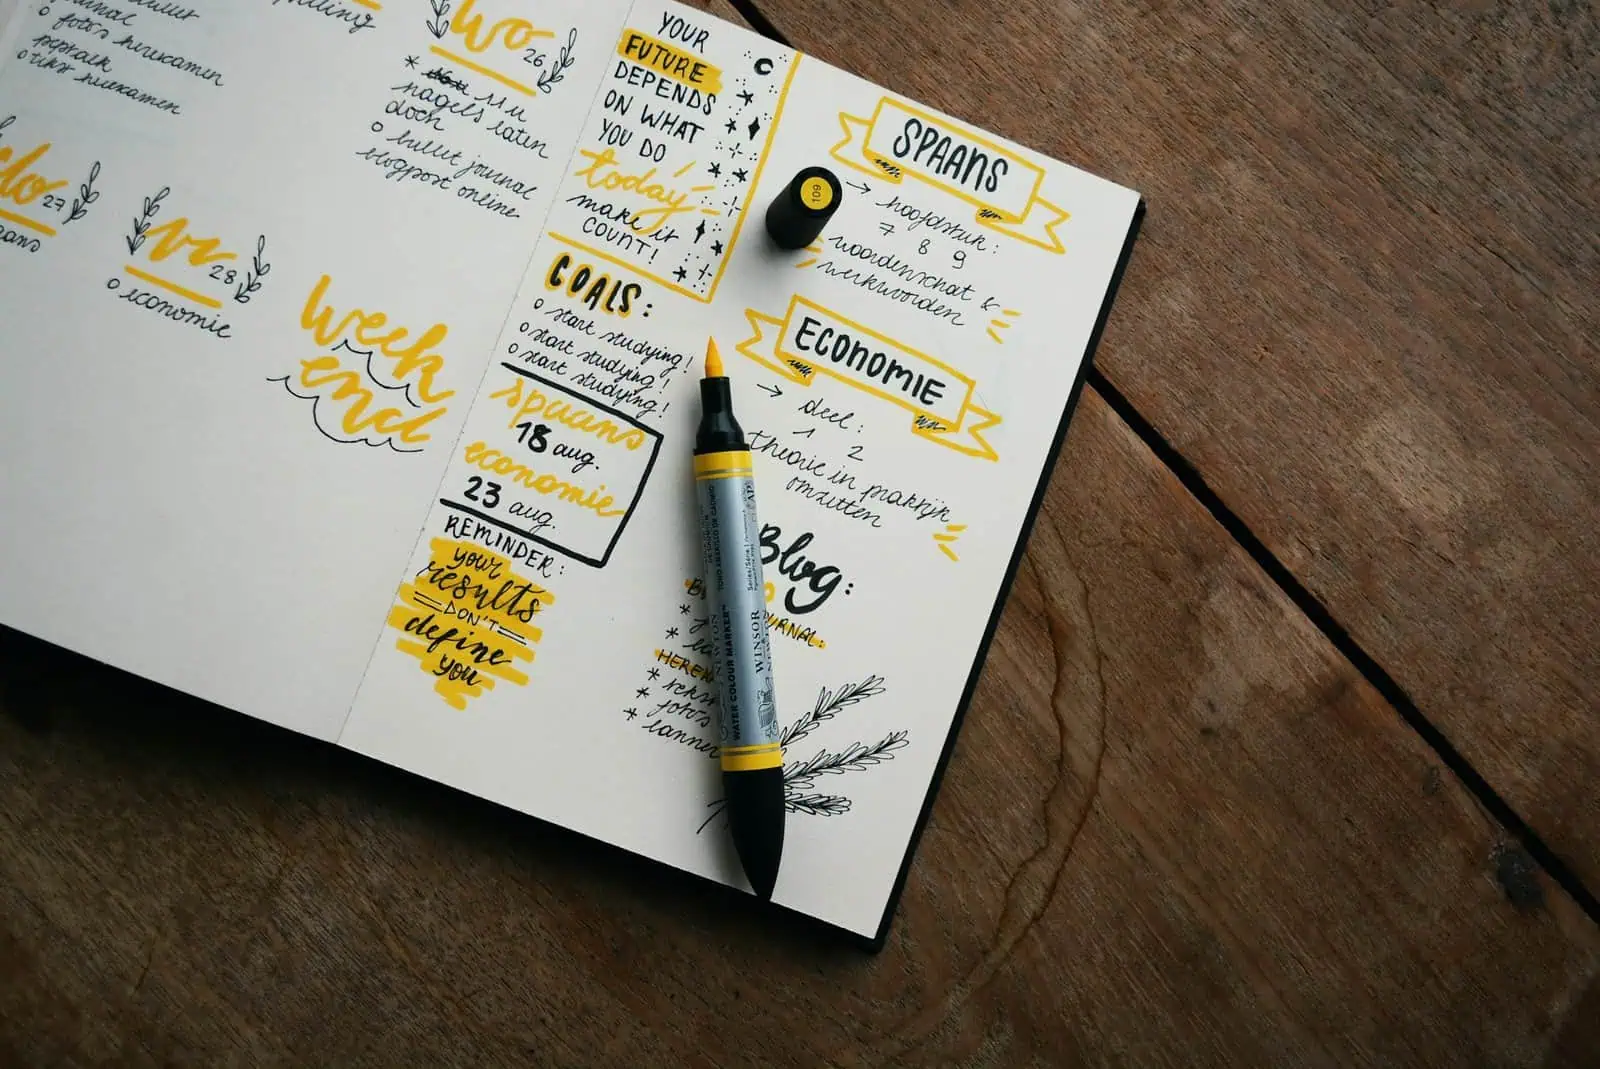 foto's hiekamen
pepsach
tikt hiekamen
Wo 26
* 11 u
nagels laten
doen
o bullet journal
blogpost online
do 27
vr 28
o economie
week
end
YOUR
FUTURE
DEPENDS
ON WHAT
YOU DO
today
make it
COUNT!
GOALS:
o start studying!
o start studying!
o start studying!
spaans
18 aug.
economie
23 aug.
REMINDER:
your
results
DON'T
define
you
SPAANS
→ hoofdstuk:
7 8 9
woordenschat &
werkwoorden
ECONOMIE
→ deel:
1 2
theorie in praktijk
omzetten
Blog:
URNAL:
*
*
HEREN
* tekst
* foto's
*
109
WINSOR
NEWTON
WATER COLOUR MARKER™
Series/Série 1